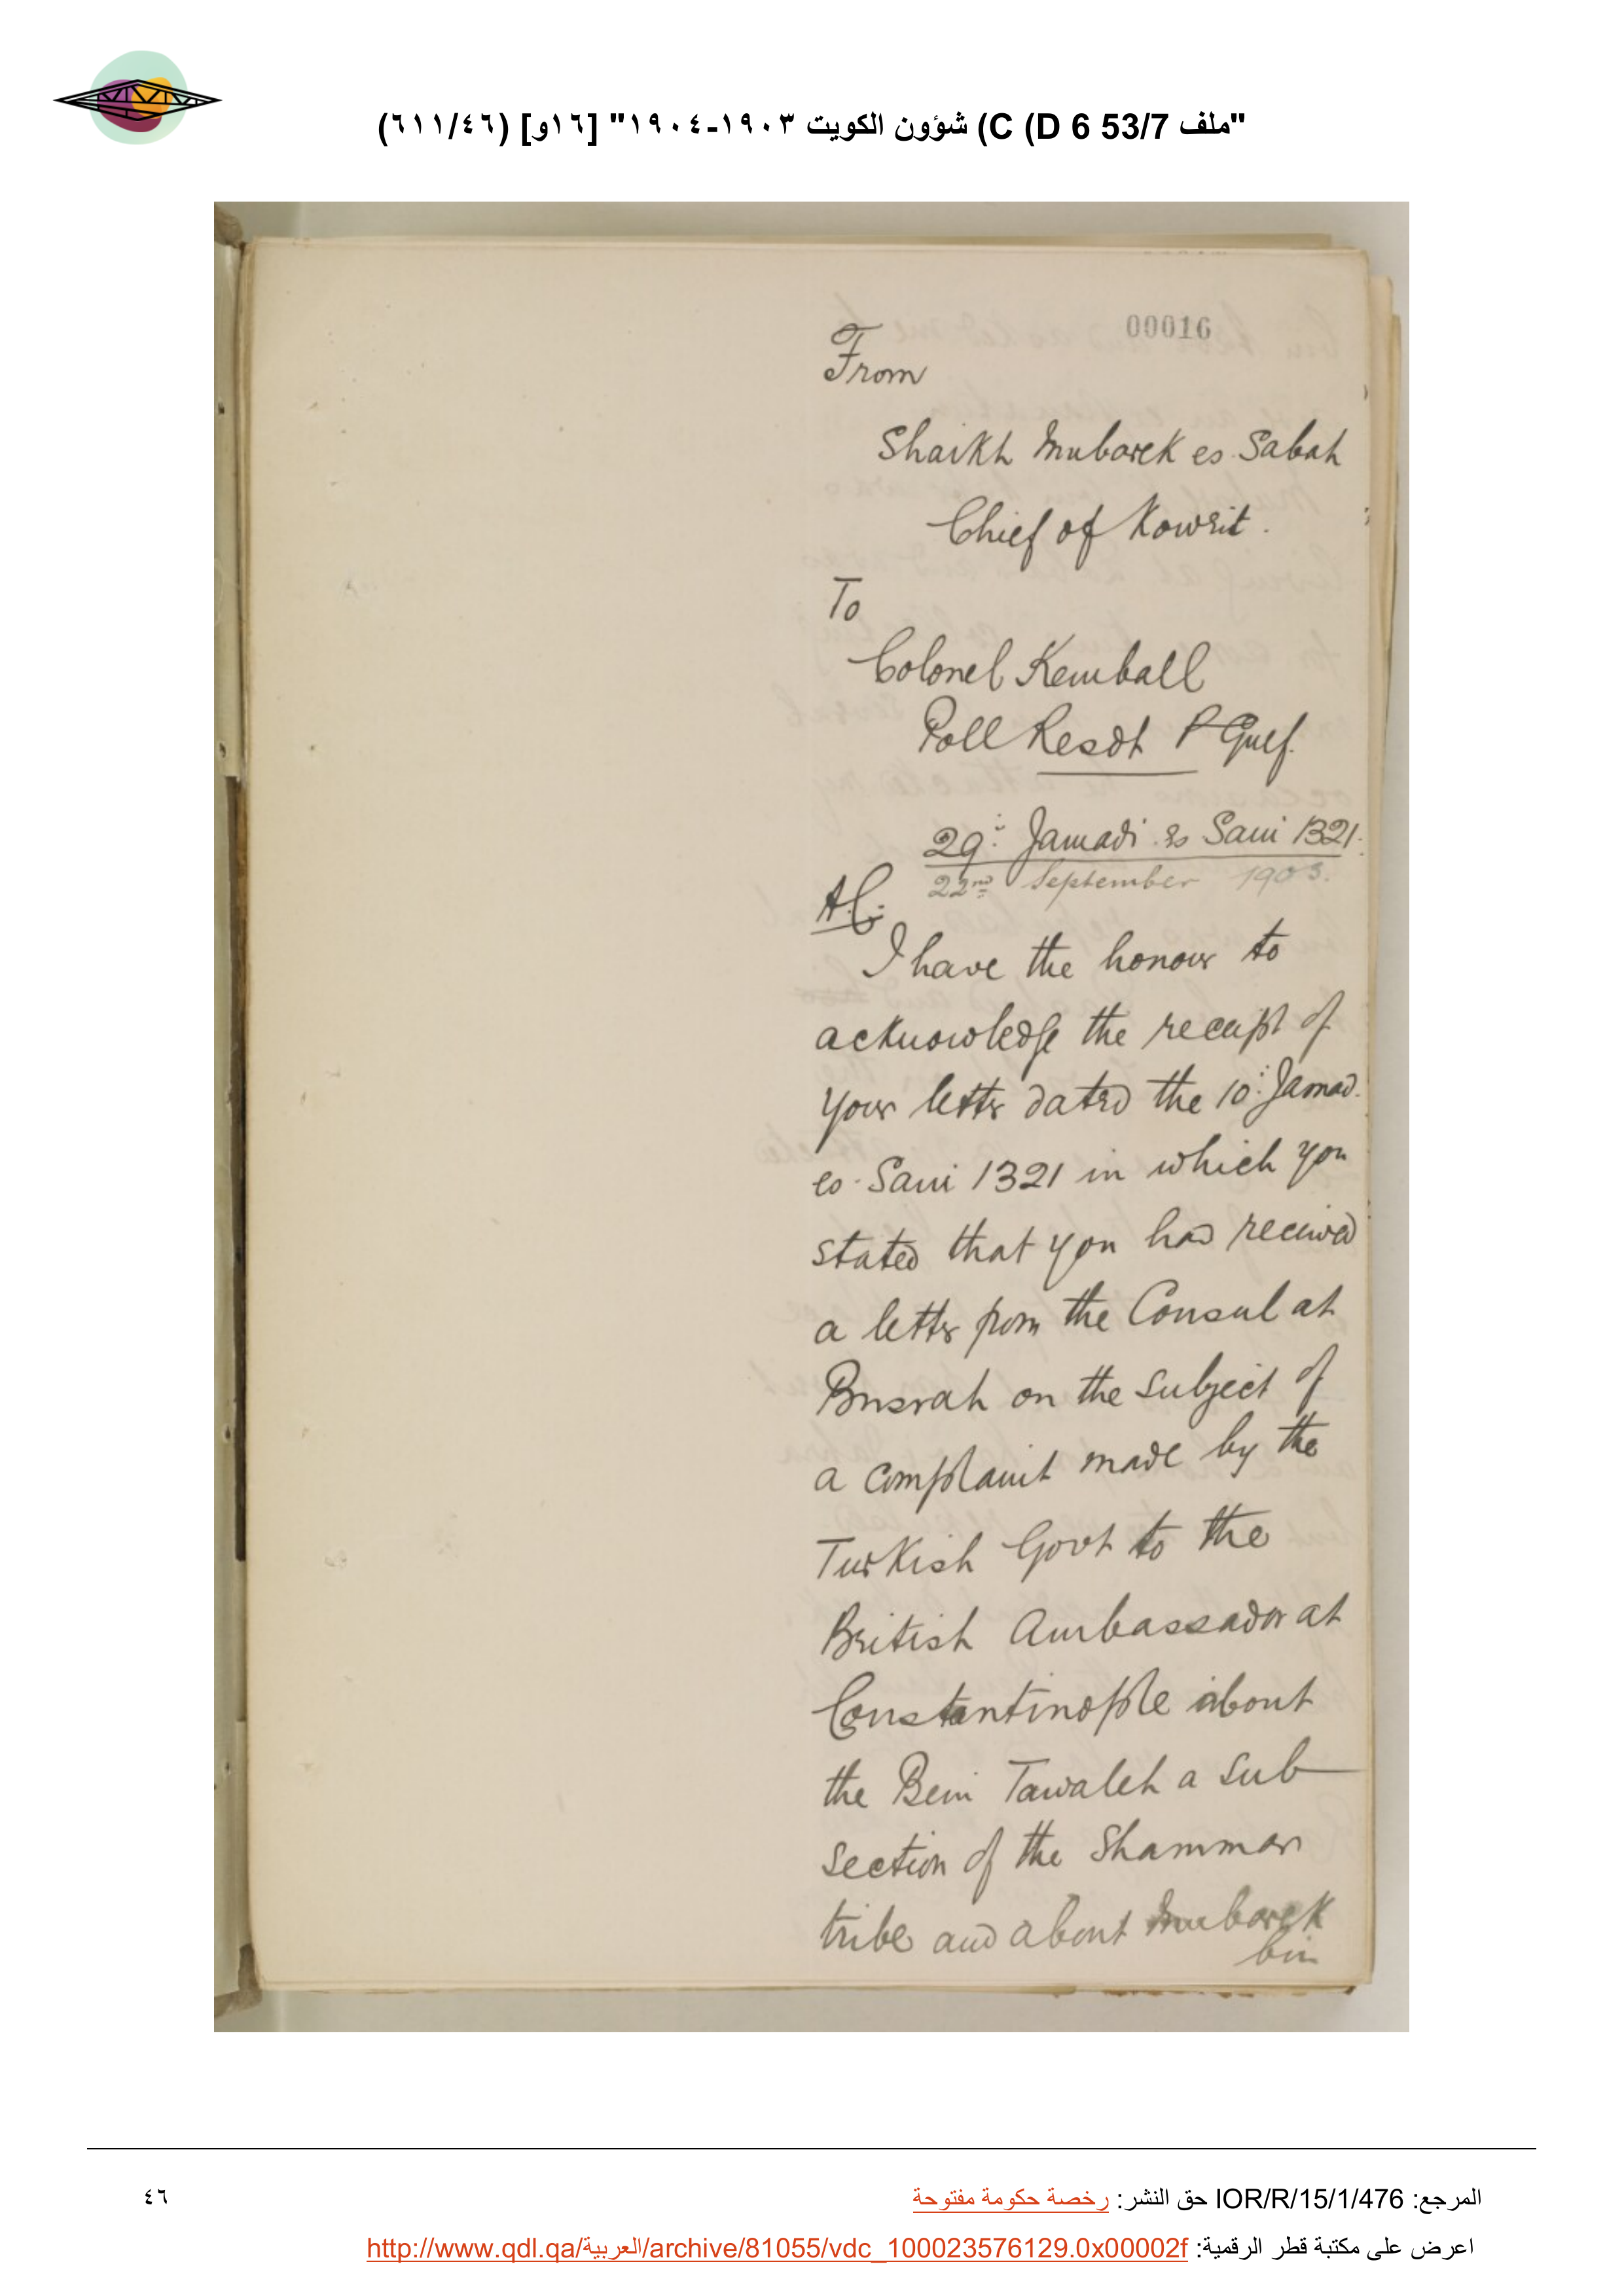 "ملف 53/7 C (D 6) شؤون الكويت ١٩٠٣-١٩٠٤" [١٦و] (٤٦/٦١١)
00016
From
Shaikh Mubarek es Sabah
Chief of Koweit.
To
Colonel Kemball
Poll Resdt P Gulf.
29: Jamadi es Sani 1321.
22nd September 1903.
A.C.
I have the honour to
acknowledge the receipt of
your letter dated the 10: Jamad.
es-Sani 1321 in which you
stated that you had received
a letter from the Consul at
Busrah on the subject of
a complaint made by the
Turkish Govt to the
British Ambassador at
Constantinople about
the Beni Tawaleh a sub
section of the Shammar
tribe and about Mubarek
bin
المرجع: IOR/R/15/1/476 حق النشر: رخصة حكومة مفتوحة
٤٦
اعرض على مكتبة قطر الرقمية: http://www.qdl.qa/العربية/archive/81055/vdc_100023576129.0x00002f